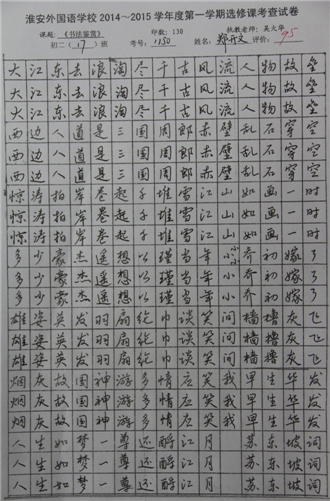 淮安外国语学校2014~2015学年度第一学期选修课考查试卷
课题:《书法鉴赏》 印数:130 执教老师:吴大华
初二(17)班 考号:1150 姓名:郑开文 评价:95
大江东去浪淘尽千古风流人物故垒
大江东去浪淘尽千古风流人物故垒
大江东去浪淘尽千古风流人物故垒
西边人道是三国周郎赤壁乱石穿空
西边人道是三国周郎赤壁乱石穿空
西边人道是三国周郎赤壁乱石穿空
惊涛拍岸卷起千堆雪江山如画一时
惊涛拍岸卷起千堆雪江山如画一时
惊涛拍岸卷起千堆雪江山如画一时
多少豪杰遥想公瑾当年小乔初嫁了
多少豪杰遥想公瑾当年小乔初嫁了
多少豪杰遥想公瑾当年小乔初嫁了
雄姿英发羽扇纶巾谈笑间樯橹灰飞
雄姿英发羽扇纶巾谈笑间樯橹灰飞
雄姿英发羽扇纶巾谈笑间樯橹灰飞
烟灰故国神游多情应笑我早生华发
烟灰故国神游多情应笑我早生华发
烟灰故国神游多情应笑我早生华发
人生如梦一尊还酹江月 苏东坡词
人生如梦一尊还酹江月 苏东坡词
人生如梦一尊还酹江月 苏东坡词